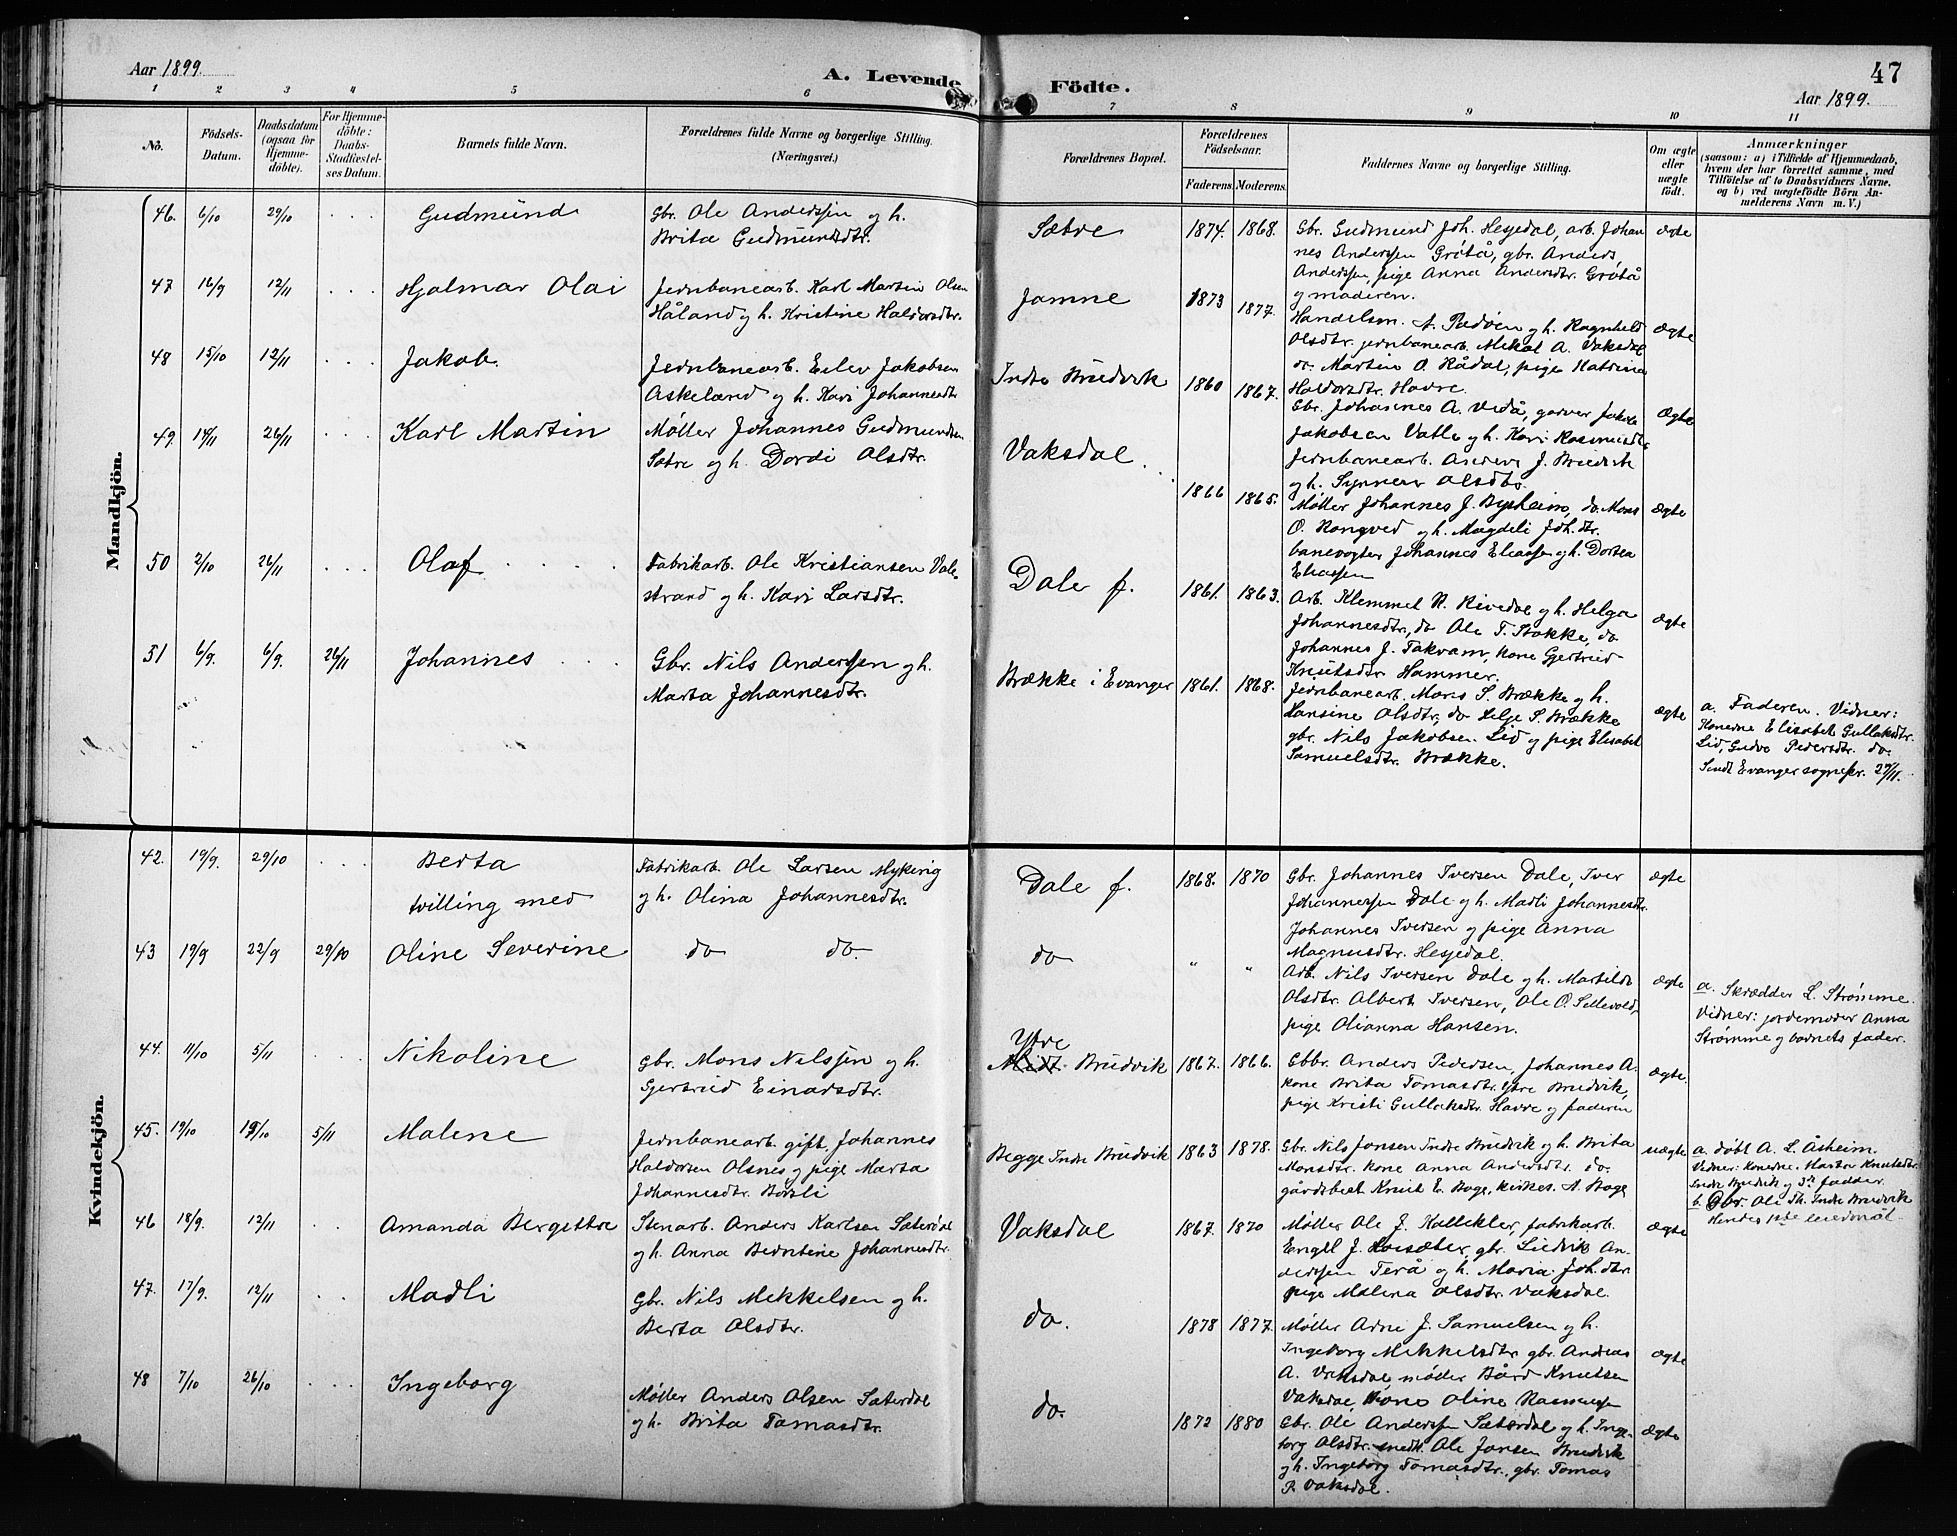 Aar 1899.
A. Levende
Födte.
47
Aar 1899.
1 2 3 4 5 6 7 8 9 10 11
No.
Födsels-
Datum.
Daabsdatum
(ogsaa for
Hjemme-
döbte).
For Hjemme-
döbte:
Daabs-
Stadfæstel-
ses Datum.
Barnets fulde Navn.
Forældrenes fulde Navne og borgerlige Stilling.
(Næringsvei.)
Forældrenes Bopæl.
Forældrenes
Födselsaar.
Faderens. Moderens.
Faddernes Navne og borgerlige Stilling.
Om ægte
eller
uægte
födt.
Anmærkninger
(saasom: a) i Tilfælde af Hjemmedaab,
hvem der har forrettet samme, med
Tilföielse af to Daabsvidners Navne.
og b) ved uægtefödte Börn An-
melderens Navn m. V.)
Mandkjön.
46. 6/10 29/10 . . . Gudmund
Gbr. Ole Anderssen og h.
Brita Gudmundsdtr.
Sætre 1874. 1868.
Gbr. Gudmund Joh. Hesjedal, arb. Johan
nes Anderssen Grøtå, gbr. Anders
Anderssen, pige Anna Andersdtr. Grøtå
og moderen.
ægte
47 16/9 12/11 . . . Hjalmar Olai
Jernbanearb. Karl Martin Olsen
Håland og h. Kristine Haldorsdtr.
Jamne 1873 1877.
Handelsm. A. og h. Ragnhild
Olsdtr. jernbanearb. Mikal A. Vaksdal
do. Martin O. Rådal, pige Katrina
Haldorsdtr. Havre.
ægte
48 15/10 12/11 . . . Jakob.
Jernbanearb. Eilev Jakobsen
Askeland og h. Kari Johannesdtr
Indre Brudvik 1860 1867.
Gbr. Johannes A. Vedå, garver Jakob
Jakobsen Vatle og h. Kari Rasmusdtr.
Jernbanearb. Anders J. Brudvik
og h. Synneva Olsdtr.
ægte
49. 14/11 26/11 . . . Karl Martin
Møller Johannes Gudmundsen
Sætre og h. Dordi Olsdtr.
Vaksdal. 1866 1865.
Møller Johannes J. Bysheim, do. Mons
O. Rongved og h. Magdeli Joh.dtr.
banevogter Johannes Eliassen og h. Dortea
Eliassen
ægte
50 2/10 26/11 . . . Olaf
Fabrikarb. Ole Kristiansen Vale-
strand og h. Kari Larsdtr.
Dale f. 1861. 1863.
Arb. Klemmet N. Rivedal og h. Helga
Johannesdtr, do Ole T. Stokke, do
Johannes J. Takvam, kone Gjertrud
Knutsdtr. Hammer.
ægte
51 6/9. 6/9. 26/11 Johannes . . .
Gbr. Nils Anderssen og h.
Marta Johannesdtr.
Brække i Evanger 1861. 1868.
Jernbanearb. Mons S. Brække og h.
Hansine Olsdtr, do Helje S. Brække
gbr. Nils Jakobsen Lid og pige Elisabet
Samuelsdtr. Brække.
ægte
a. Faderen. Vidner:
Konerne Elisabet Gullaksdtr.
Lid, Gudve Pedersdtr. do.
Sendt Evanger sognepr. 27/11.
Kvindekjön.
42. 19/9. 29/10 . . . Berta
tvilling med
Fabrikarb. Ole Larsen Myking
og h. Olina Johannesdtr.
Dale f. 1868. 1870
Gbr. Johannes Iversen Dale, Iver
Johannessen Dale og h. Madli Johannesdtr.
Johannes Iversen og pige Anna
Magnusdtr. Hesjedal.
ægte
43 19/9 22/9 29/10 Oline Severine
do do.
do " "
Arb. Nils Iversen Dale og h. Martilde
Olsdtr. Albert Iversen, Ole O. Sellevold,
pige Olianna Hansen.
ægte
a. Skrædder L. Strømme.
Vidner: jordemoder Anna
Strømme og barnets fader.
44. 11/10 5/11 Nikoline
Gbr. Mons Nilssen og h.
Gjertrud Einarsdtr.
Ytre
Midt Brudvik 1867. 1866.
Gbbr. Anders Pedersen, Johannes A.
kone Brita Tomasdtr. Ytre Brudvik,
pige Kristi Gullaksdtr. Havre og faderen
ægte.
45. 19/10 19/10 5/11 Malene
Jernbanearb. gift, Johannes
Haldorsen Olsnes og pige Marta
Johannesdtr.
Begge Indre Brudvik 1863 1878.
Gbr. Nils Jonsen Indre Brudvik og h. Brita
Monsdtr. kone Anna Andersdtr. do.
gårdsbest Knut E. Boge, kirkes. A. Boge
uægte
a. døbt A. L. Åsheim.
Vidner: konerne. Marta Knutsdtr.
Indre Brudvik og 3die fadder.
b. Gbr. Ole Th. Indre Brudvik
Hendes 1ste leiermål.
46 18/9. 12/11 . . Amanda Bergitte
Stenarb. Anders Karlsen Sæterdal
og h. Anna Berntine Johannesdtr.
Vaksdal 1867. 1870
Møller Ole J. Kallekler, fabrikarb.
Engel J. Horsæter, gbr. Ludvik An-
derssen Terå og h. Maria Joh.dtr.
pige Malena Olsdtr. Vaksdal.
ægte
47. 17/9. 12/11 . . Madli
Gbr. Nils Mikkelsen og h.
Berta Olsdtr.
do. 1878 1877.
Møller Arne J. Samuelsen og h.
Ingeborg Mikkelsdtr gbr. Andreas
A. Vaksdal, møller Bård Knutsen
Vaksdal, kone Oline Rasmussen
ægte
48 7/10 26/10 . . . Ingeborg
Møller Anders Olsen Sæterdal
og h. Brita Tomasdtr.
do. 1872 1880
Gbr. Ole Anderssen Sæterdal og h. Inge-
borg Olsdtr. smed Ole Jonsen Brudvik
og h. Ingeborg Tomasdtr., gbr. Tomas
P. Vaksdal.
ægte